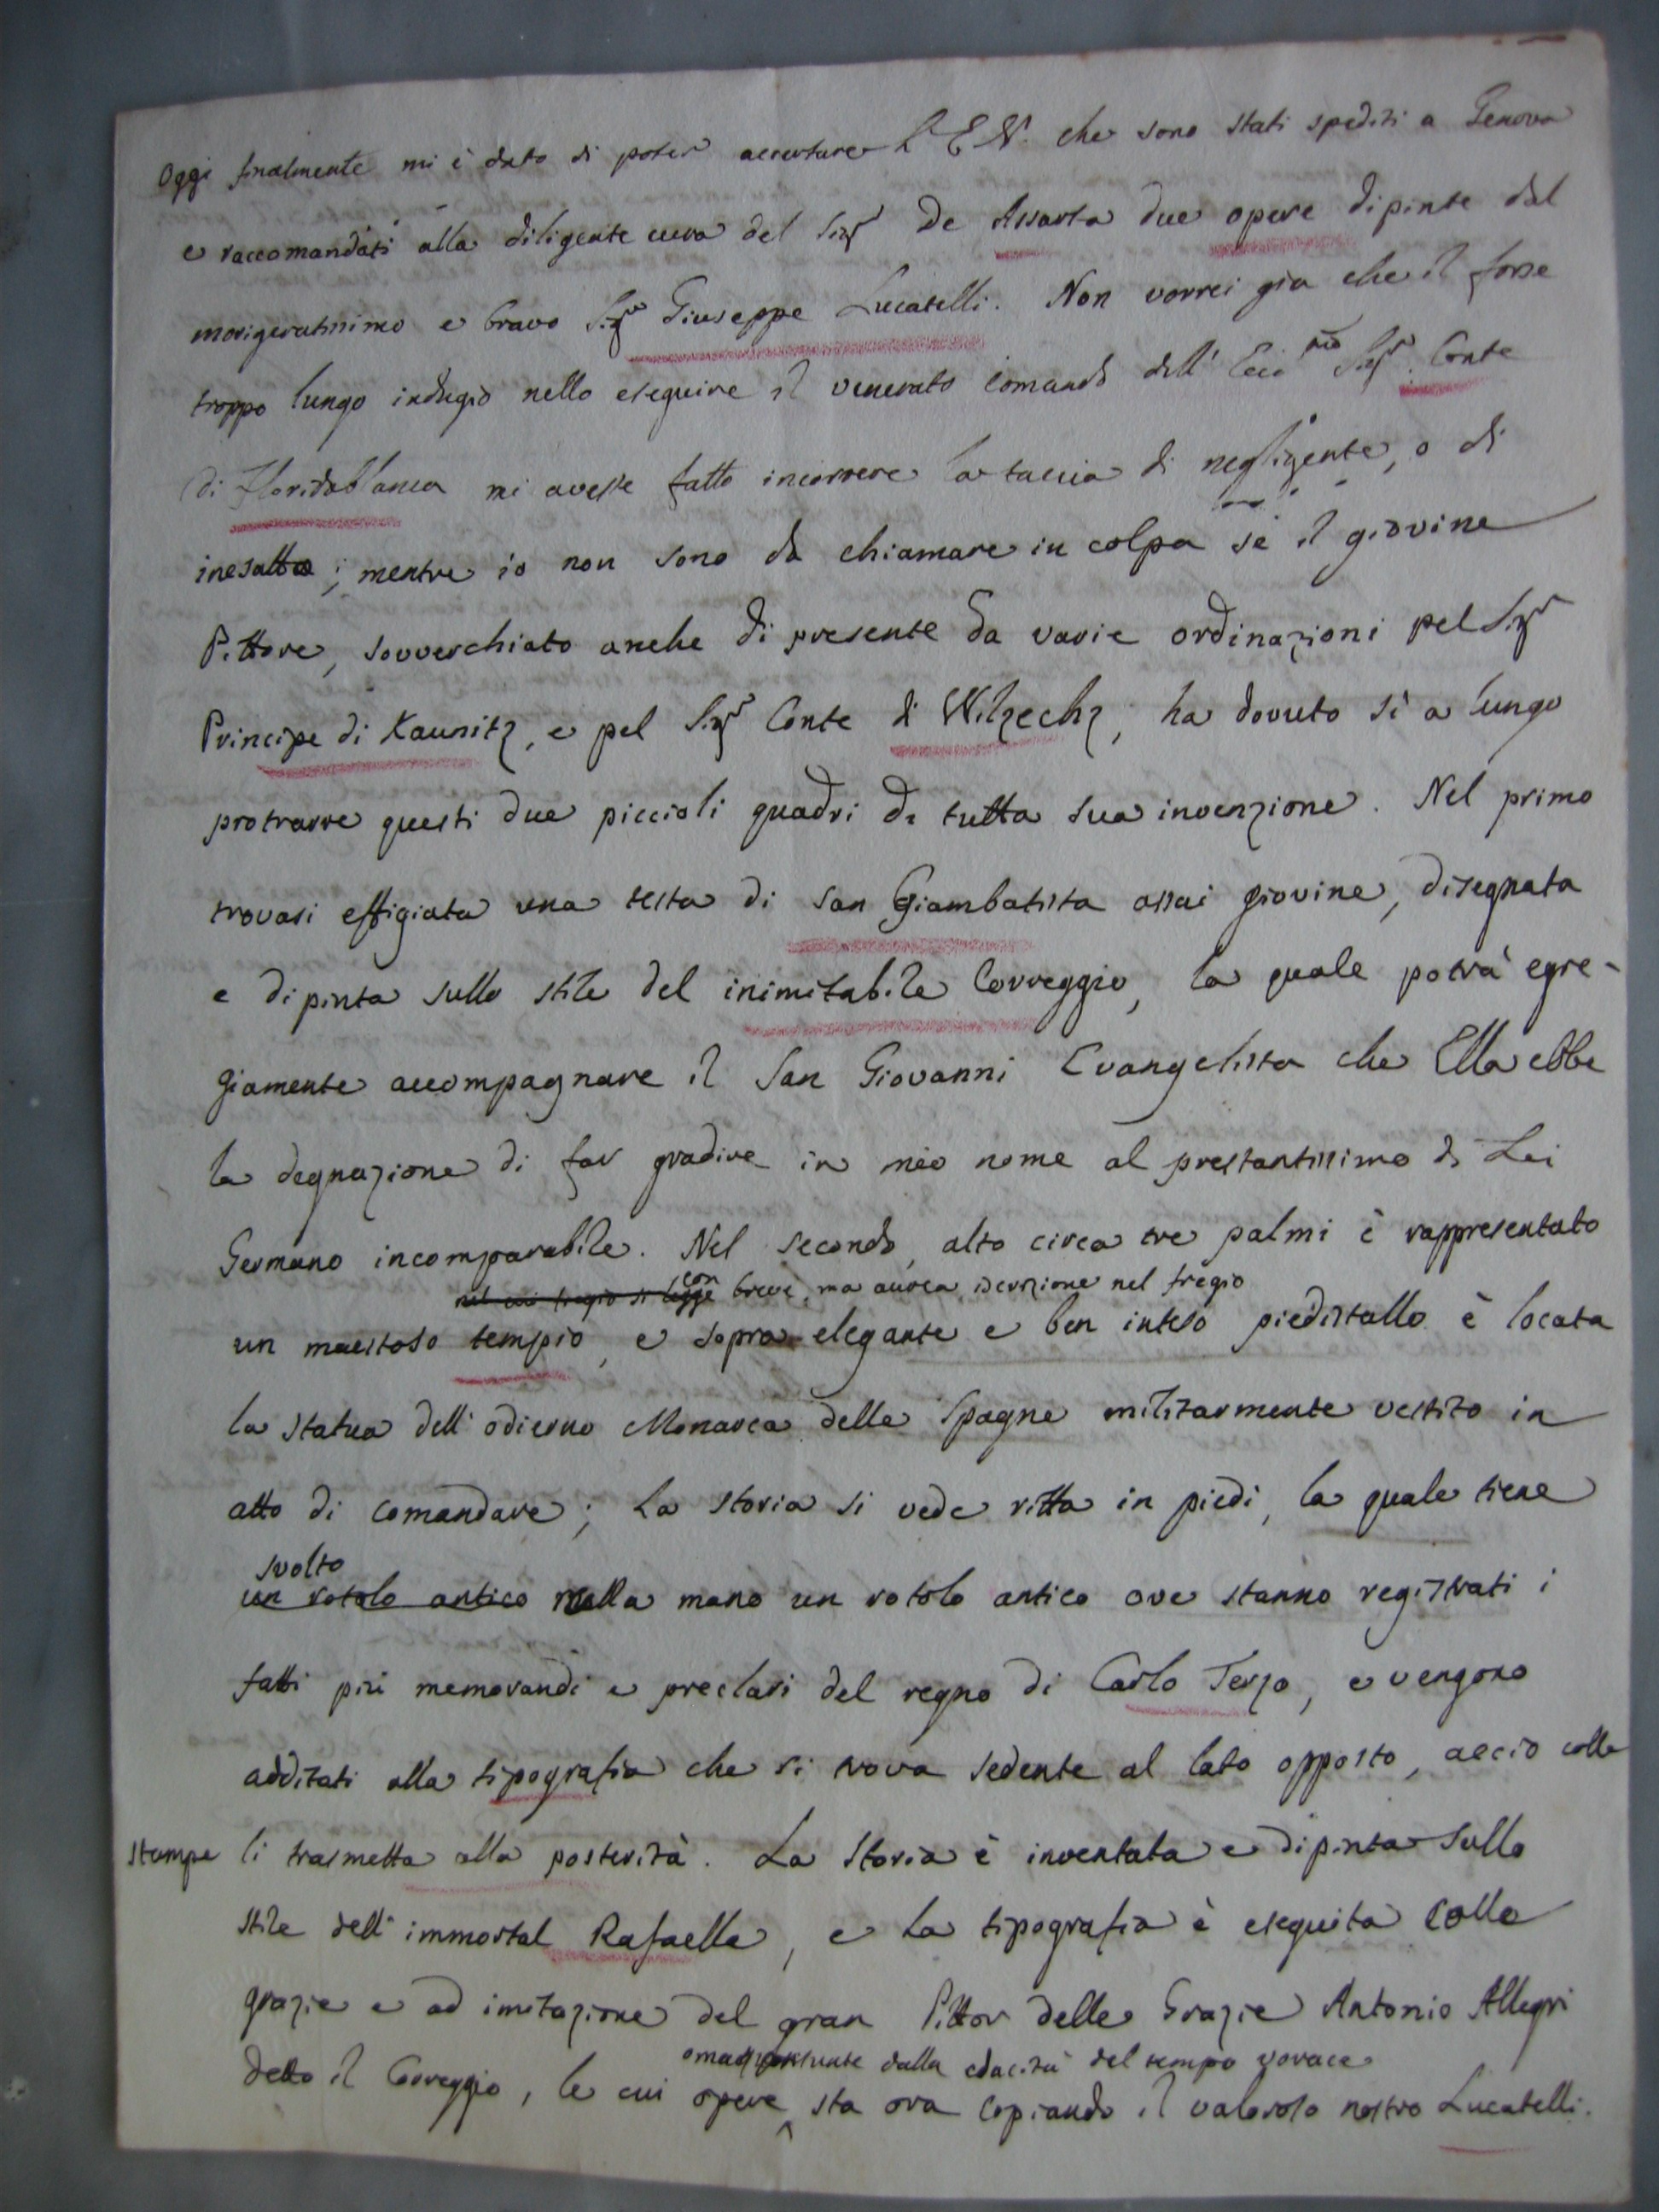 Oggi finalmente mi è dato di poter accertare L'E.V. che sono stati spediti a Genova
e raccomandati alla diligente cura del Sigr De Assarta due opere dipinte dal
morigeratissimo e bravo Sigr Giuseppe Lucatelli. Non vorrei gia che il forse
troppo lungo indugio nello eseguire il venerato comando dell' Eccmo Sigr Conte
di Floridablanca mi avesse fatto incorrere la taccia di negligente, o di
inesatto; mentre io non sono da chiamare in colpa se il giovine
Pittore, sovverchiato anche di presente da varie ordinazioni pel Sigr
Principe di Kaunitz, e pel Sigr Conte di Wilzechz, ha dovuto sì a lungo
protrarre questi due piccioli quadri di tutta sua invenzione. Nel primo
trovasi effigiata una testa di San Giambatista assai giovine, disegnata
e dipinta sullo stile del inimitabile Correggio, la quale potrà egre-
giamente accompagnare il San Giovanni Evangelista che Ella ebbe
la degnazione di far gradire in mio nome al prestantissimo di Lei
Germano incomparabile. Nel secondo, alto circa tre palmi è rappresentato
nel cui fregio si legge con breve, ma aurea iscrizione nel fregio
un maestoso tempio, e sopra elegante e ben inteso piedistallo è locata
la statua dell' odierno Monarca delle Spagne militarmente vestito in
atto di comandare; La storia si vede ritta in piedi, la quale tiene
svolto
un rotolo antico nella mano un rotolo antico ove stanno registrati i
fatti più memorandi e preclari del regno di Carlo Terzo, e vengono
additati alla tipografia che si trova sedente al lato opposto, acciò colle
stampe li trasmetta alla posterità. La Storia è inventata e dipinta sullo
stile dell' immortal Rafaelle, e la tipografia è eseguita colle
grazie e ad imitazione del gran Pittor delle Grazie Antonio Allegri
omai dalla edacità del tempo vorace
detto il Correggio, le cui opere sta ora copiando il valoroso nostro Lucatelli.